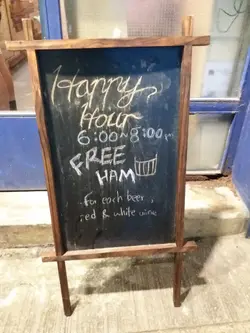 Happy
Hour
6:00~8:00pm
FREE
HAM
for each beer,
red & white wine